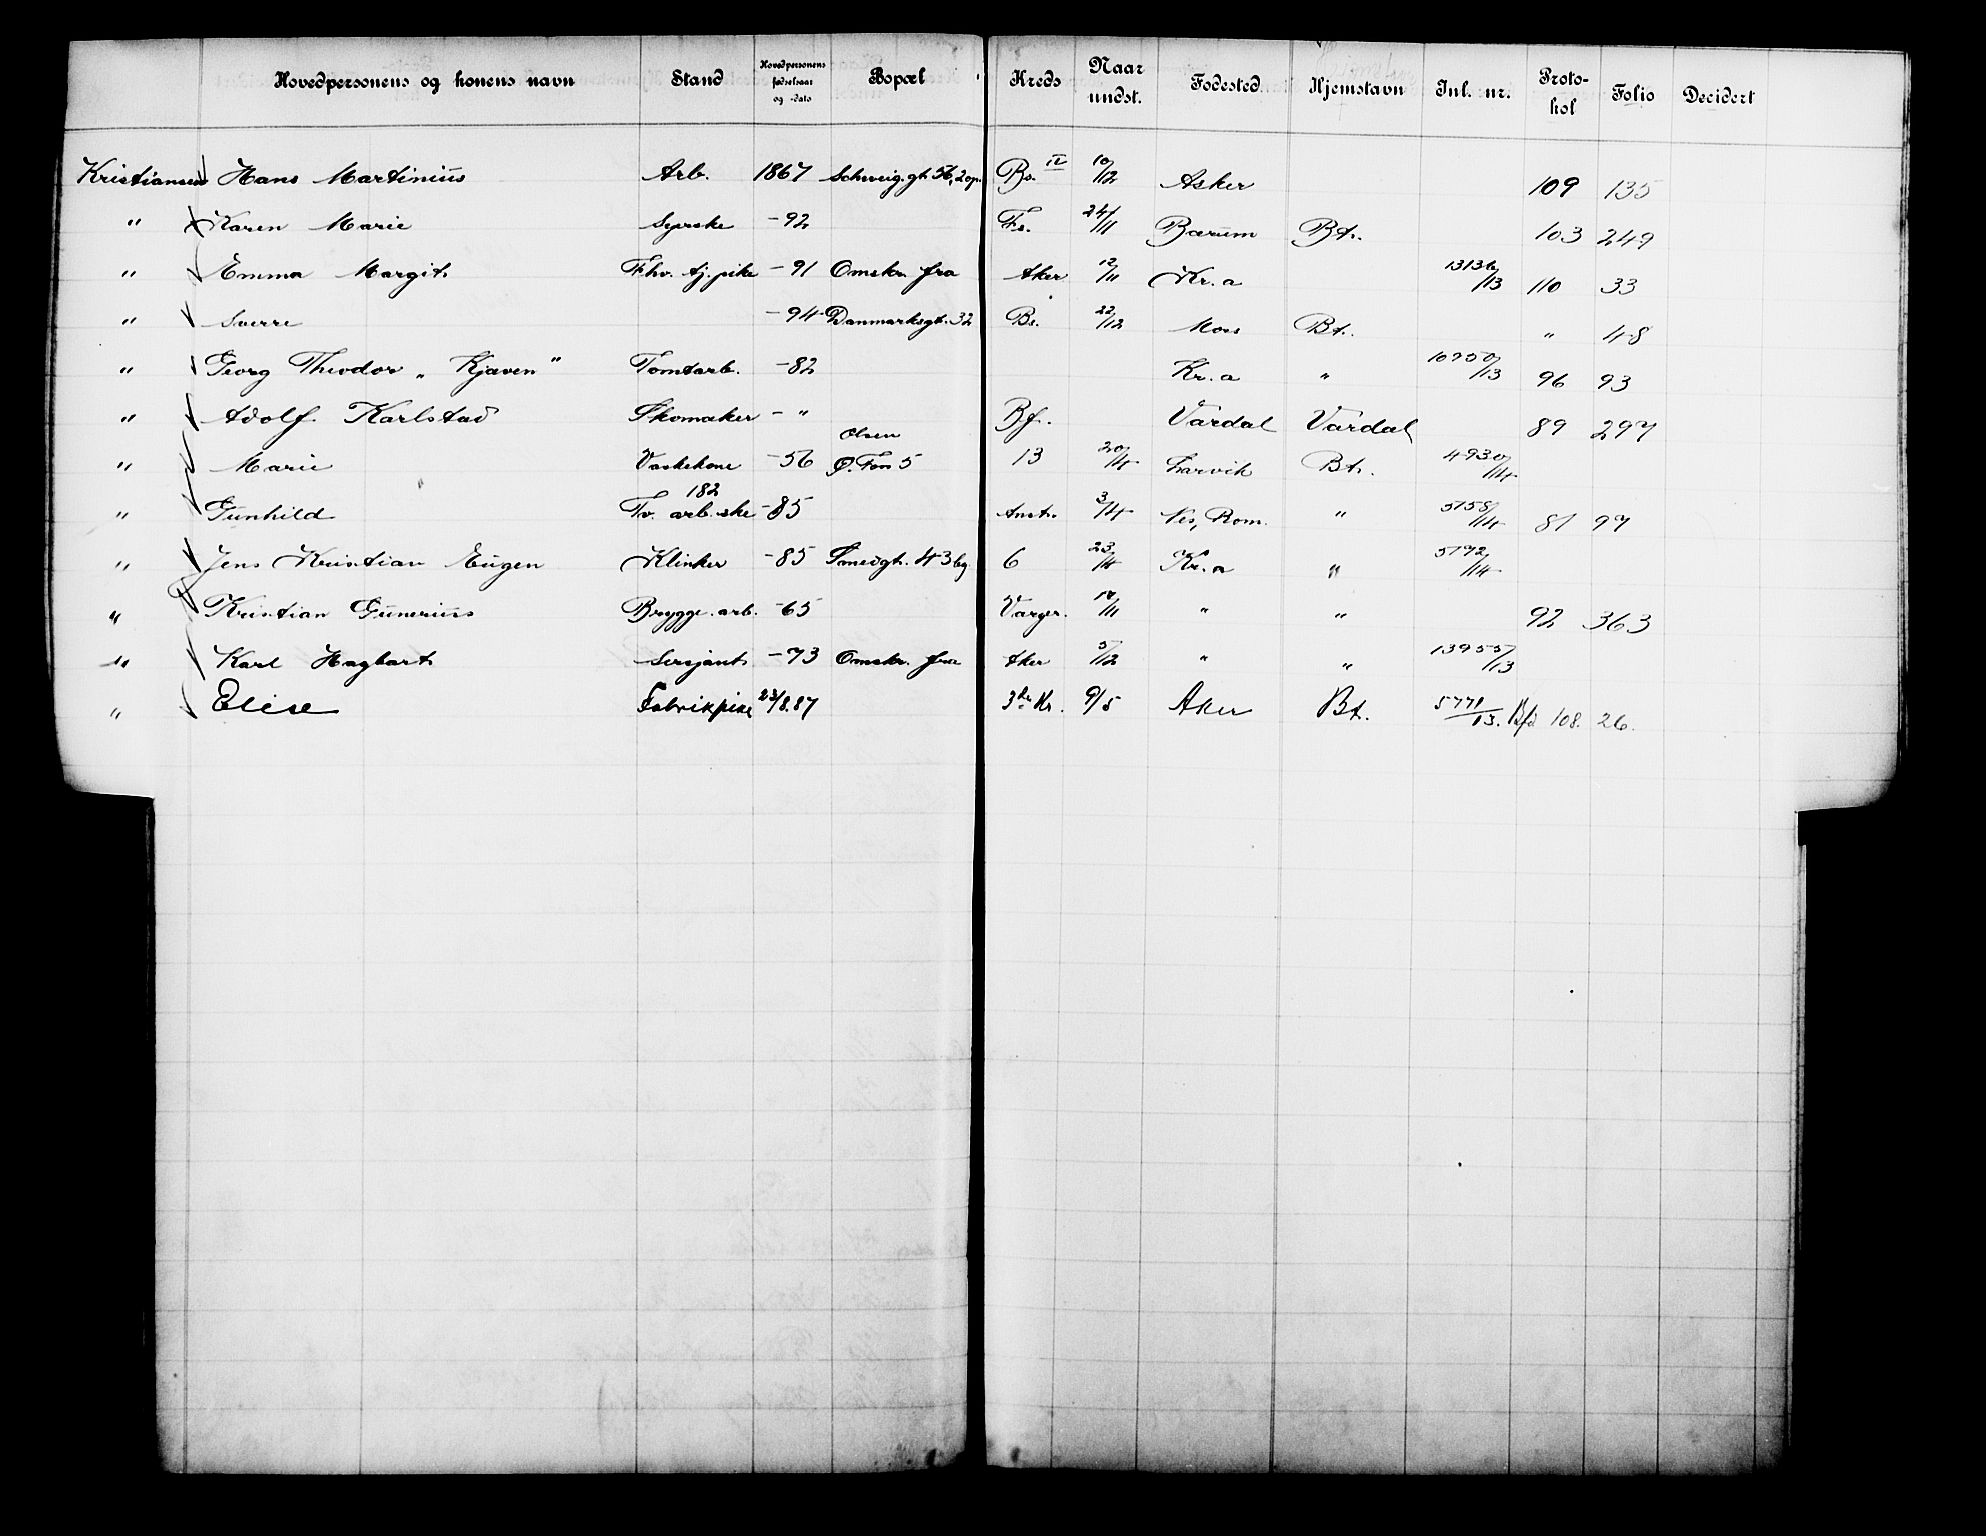 Hovedpersonens og konens navn Stand Hovedpersonens fødselsaar og -dato Bopæl Kreds Naar undst. Fødested Hjemstavn Jnl. nr. Protokol Folio Decidert
Kristiansen Hans Martinius Arb. 1867 Schweig.gt. 56, 2 op. Bs. IV 10/12 Asker 109 135
" Karen Marie Syerske -92 Fs. 24/11 Bærum Bt. 103 249
" Emma Margit Fhv. tj.pike -91 Omskr. fra Aker 12/11 Kr.a 13136/13 110 33
" Sverre -94 Danmarksgt. 32 Bs. 22/12 Moss Bt. " 48
" Georg Theodor „Kjæven" Tomtarb. -82 Kr.a " 10950/13 96 93
" Adolf Karlstad Skomaker - " Bf. Vardal Vardal 89 297
" Marie Vaskekone -56 Olsen Ø. Foss 5 13 20/4 Larvik Bt. 4930/14
" Gunhild Tv. arb.ske 182 -85 Anst. 3/14 Nes, Rom. " 5158/14 81 97
" Jens Kristian Eugen Klinker -85 Smedgt. 43 bg. 6 23/4 Kr.a " 5192/14
" Kristian Gunerius Brygge.arb. -65 Varger. 14/11 " " 92 363
" Karl Hagbart Sersjant -73 Omskr. fra Aker 5/12 " " 13955/13
" Elise Fabrikpike 23/8.87 3die Kr. 9/5 Aker Bt. 5771/13. Bfd 108. 26.